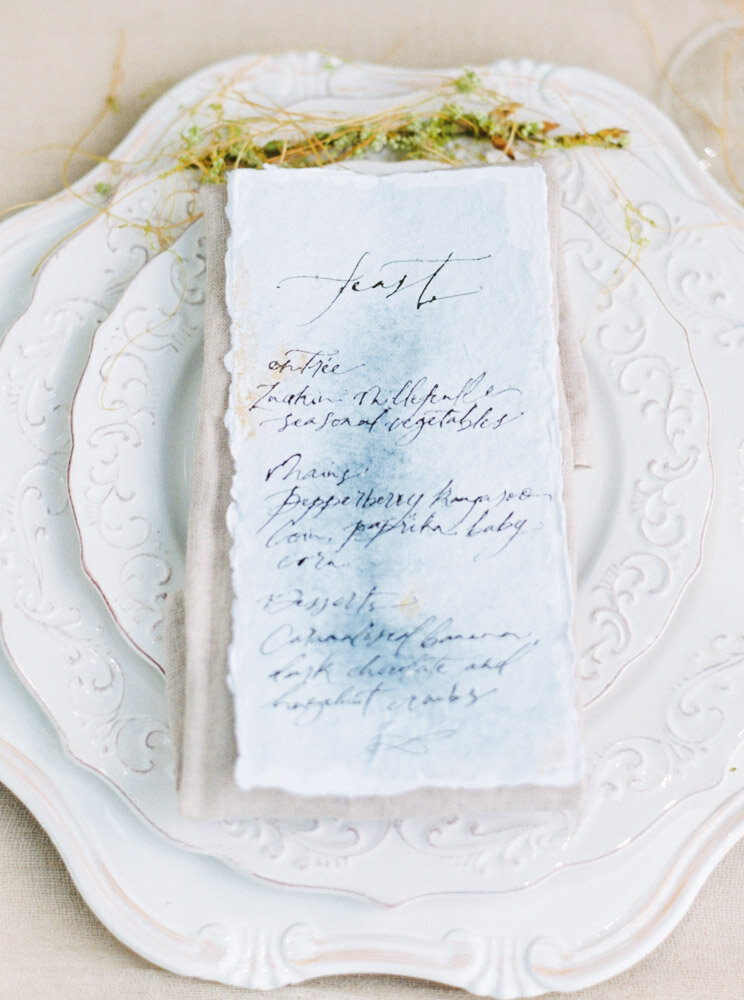 feast
entrée
Zucchini Millefeuille
seasonal vegetables
Mains
Pepperberry Kangaroo
loin, paprika, baby
corn.
Desserts
Caramelised banana,
dark chocolate and
hazelnut crumbs